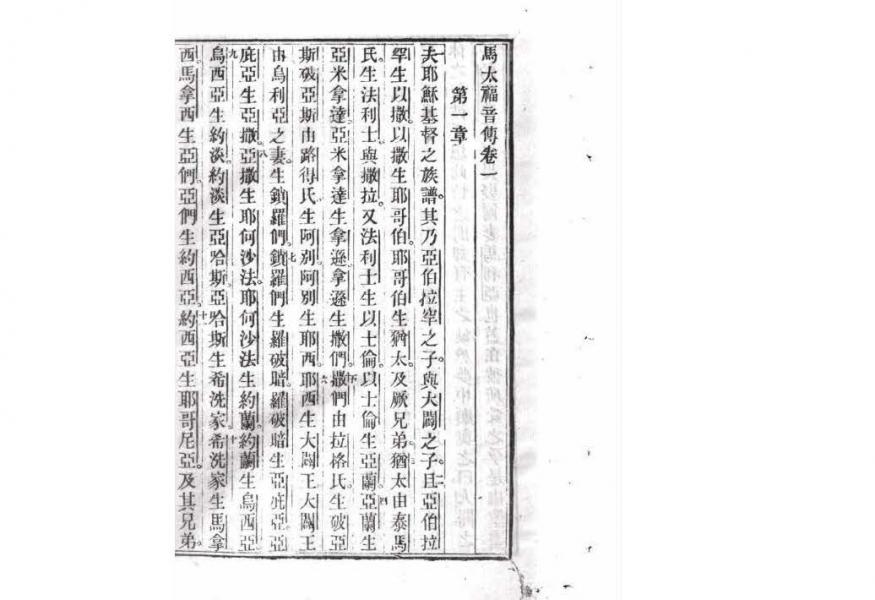 馬太福音傳卷一
第一章
一夫耶穌基督之族譜。其乃亞伯拉罕之子。與大闢之子。二且亞伯拉
罕生以撒。以撒生耶哥伯。耶哥伯生猶太及厥兄弟。三猶太由泰馬
氏生法利士與撒拉。又法利士生以士倫。以士倫生亞蘭。四亞蘭生
亞米拿達。亞米拿達生拿遜。拿遜生撒們。五撒們由拉格氏生破亞
斯。破亞斯由路得氏生阿別。阿別生耶西。六耶西生大闢王。大闢王
由烏利亞之妻。生鎖羅們。七鎖羅們生羅破暗。羅破暗生亞庇亞。亞
庇亞生亞撒。八亞撒生耶何沙法。耶何沙法生約蘭。約蘭生烏西亞。
九烏西亞生約淡。約淡生亞哈斯。亞哈斯生希洗家。十希洗家生馬拿
西。馬拿西生亞們。亞們生約西亞。十一約西亞生耶哥尼亞。及其兄弟。